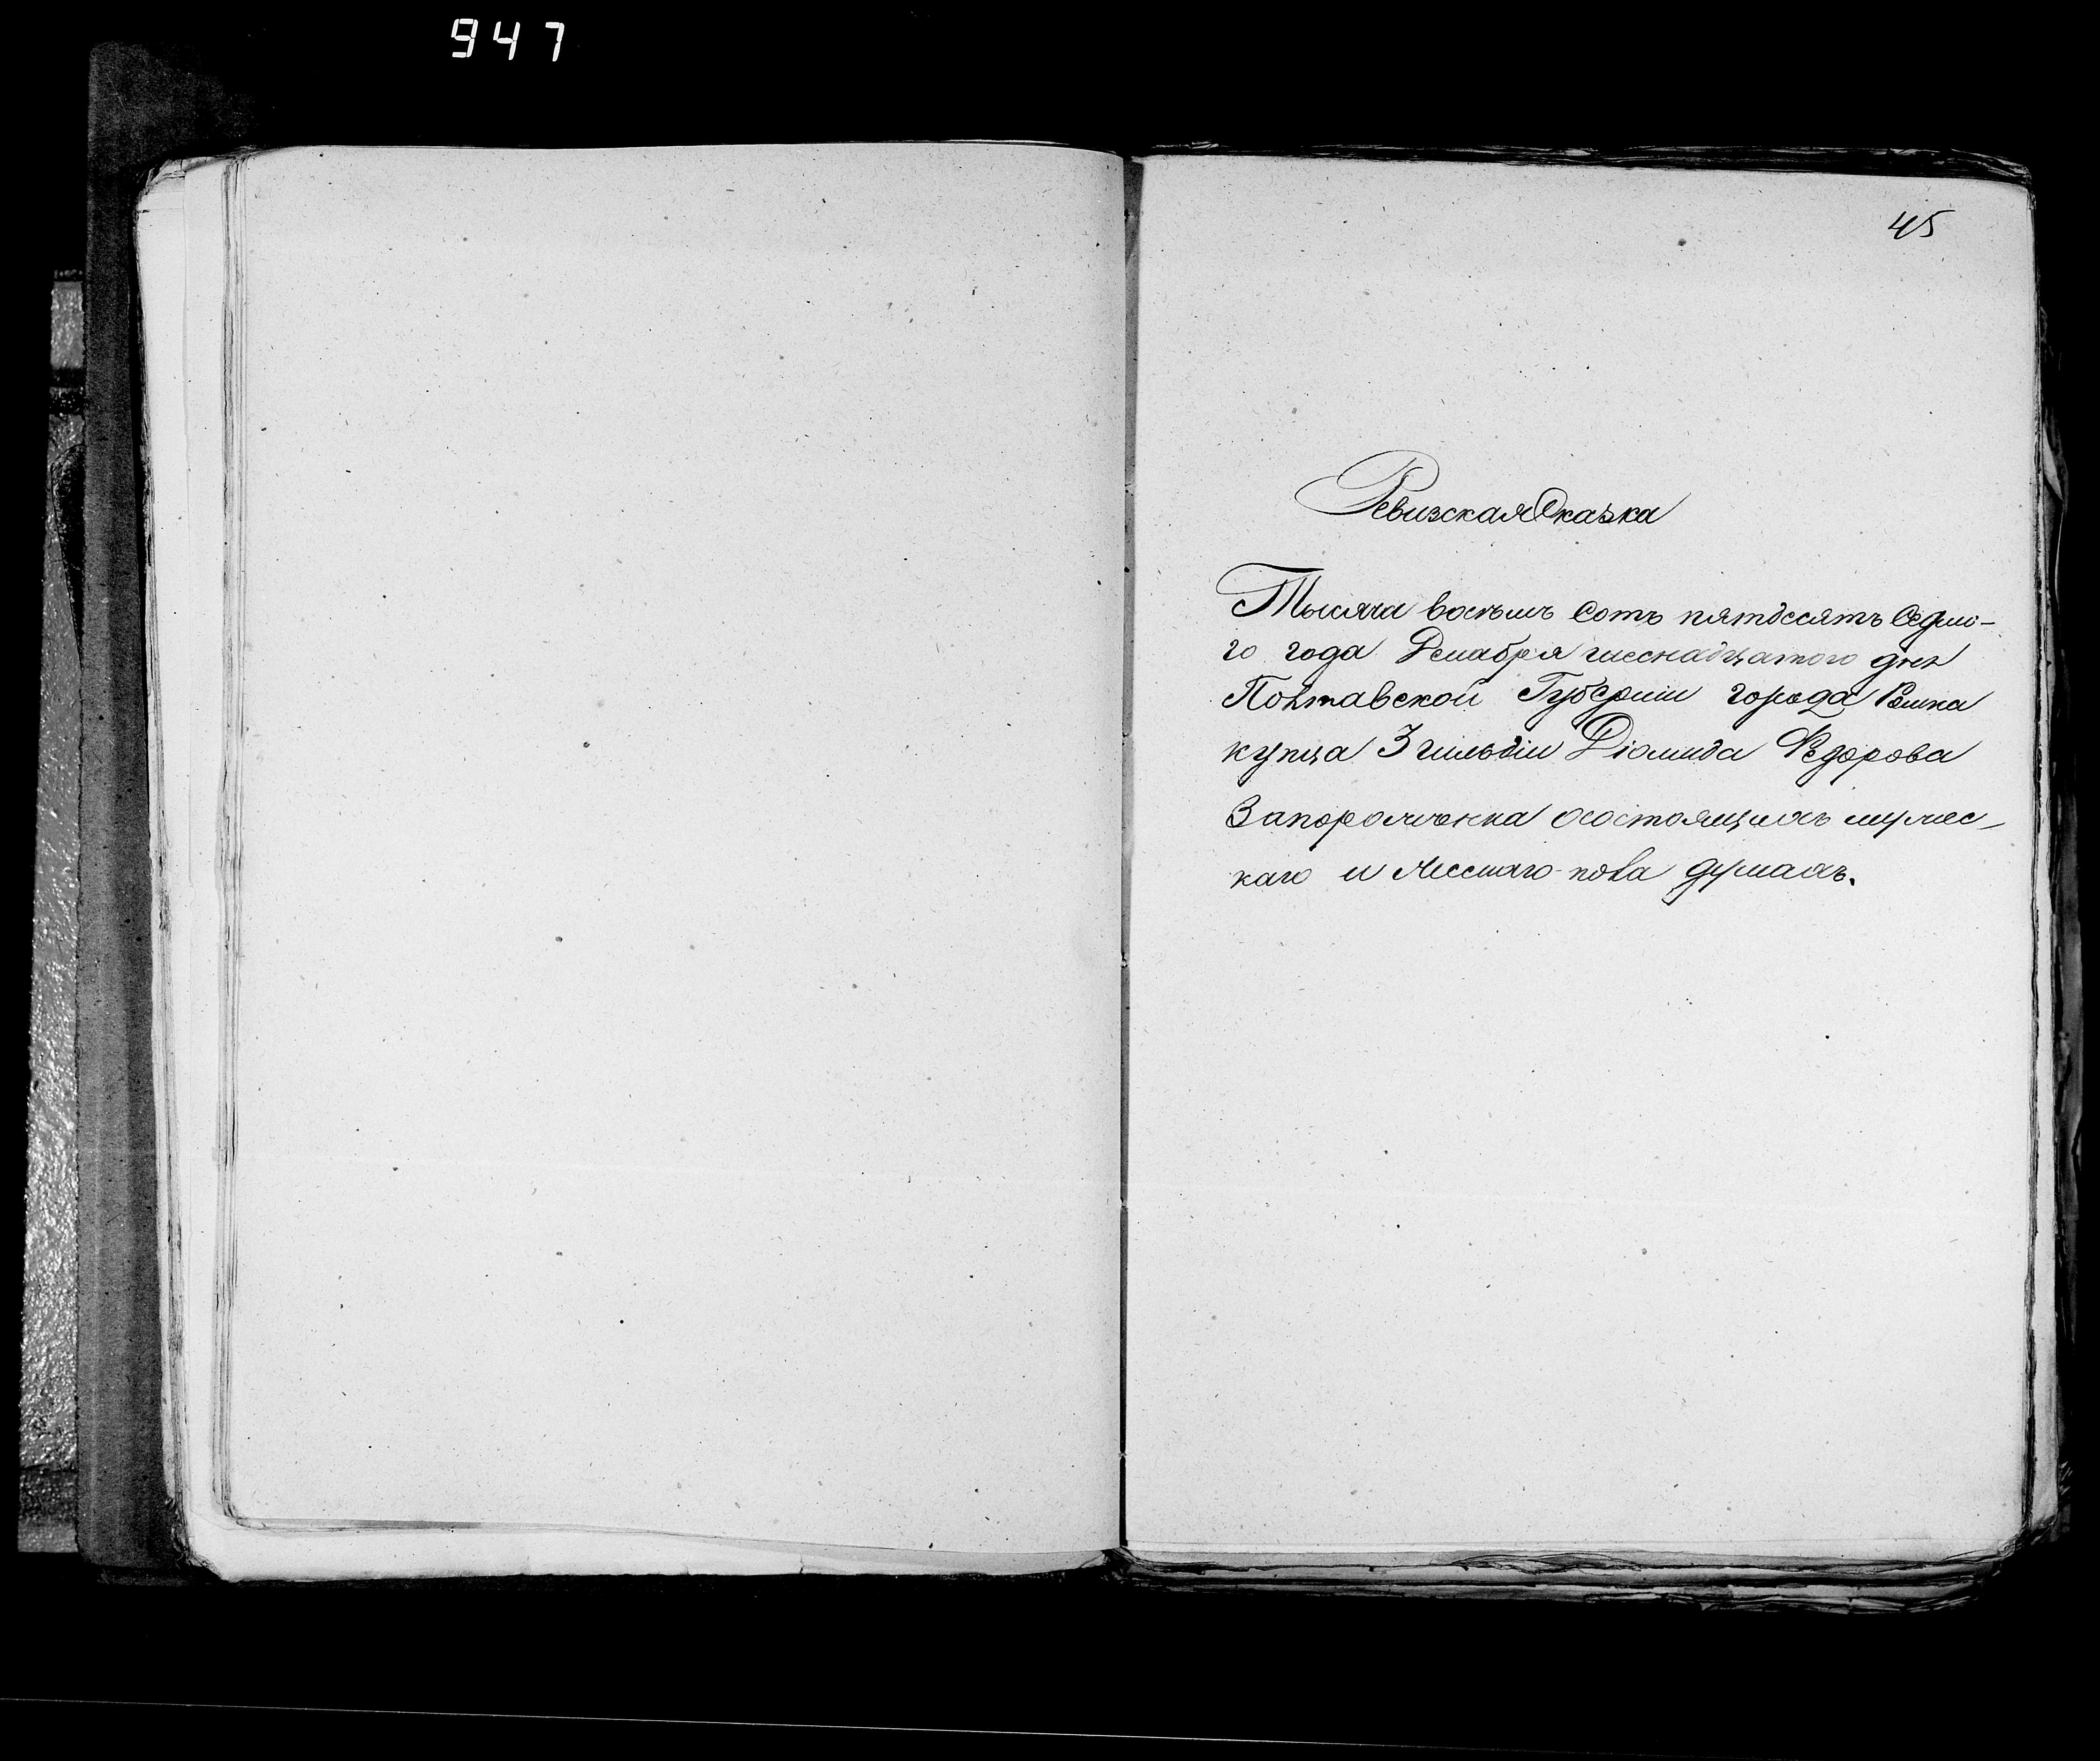 947
45
Ревизская Сказка
Тысяча восемь Сотъ пятдесятъ Седмо-
го года Декабря шеснадцатого дня
Полтавской Губерніи города
купца 3 гильдіи Діомида Федорова
Запорожченка осостоящихъ мужес-
каго и Женскаго пола душахъ.